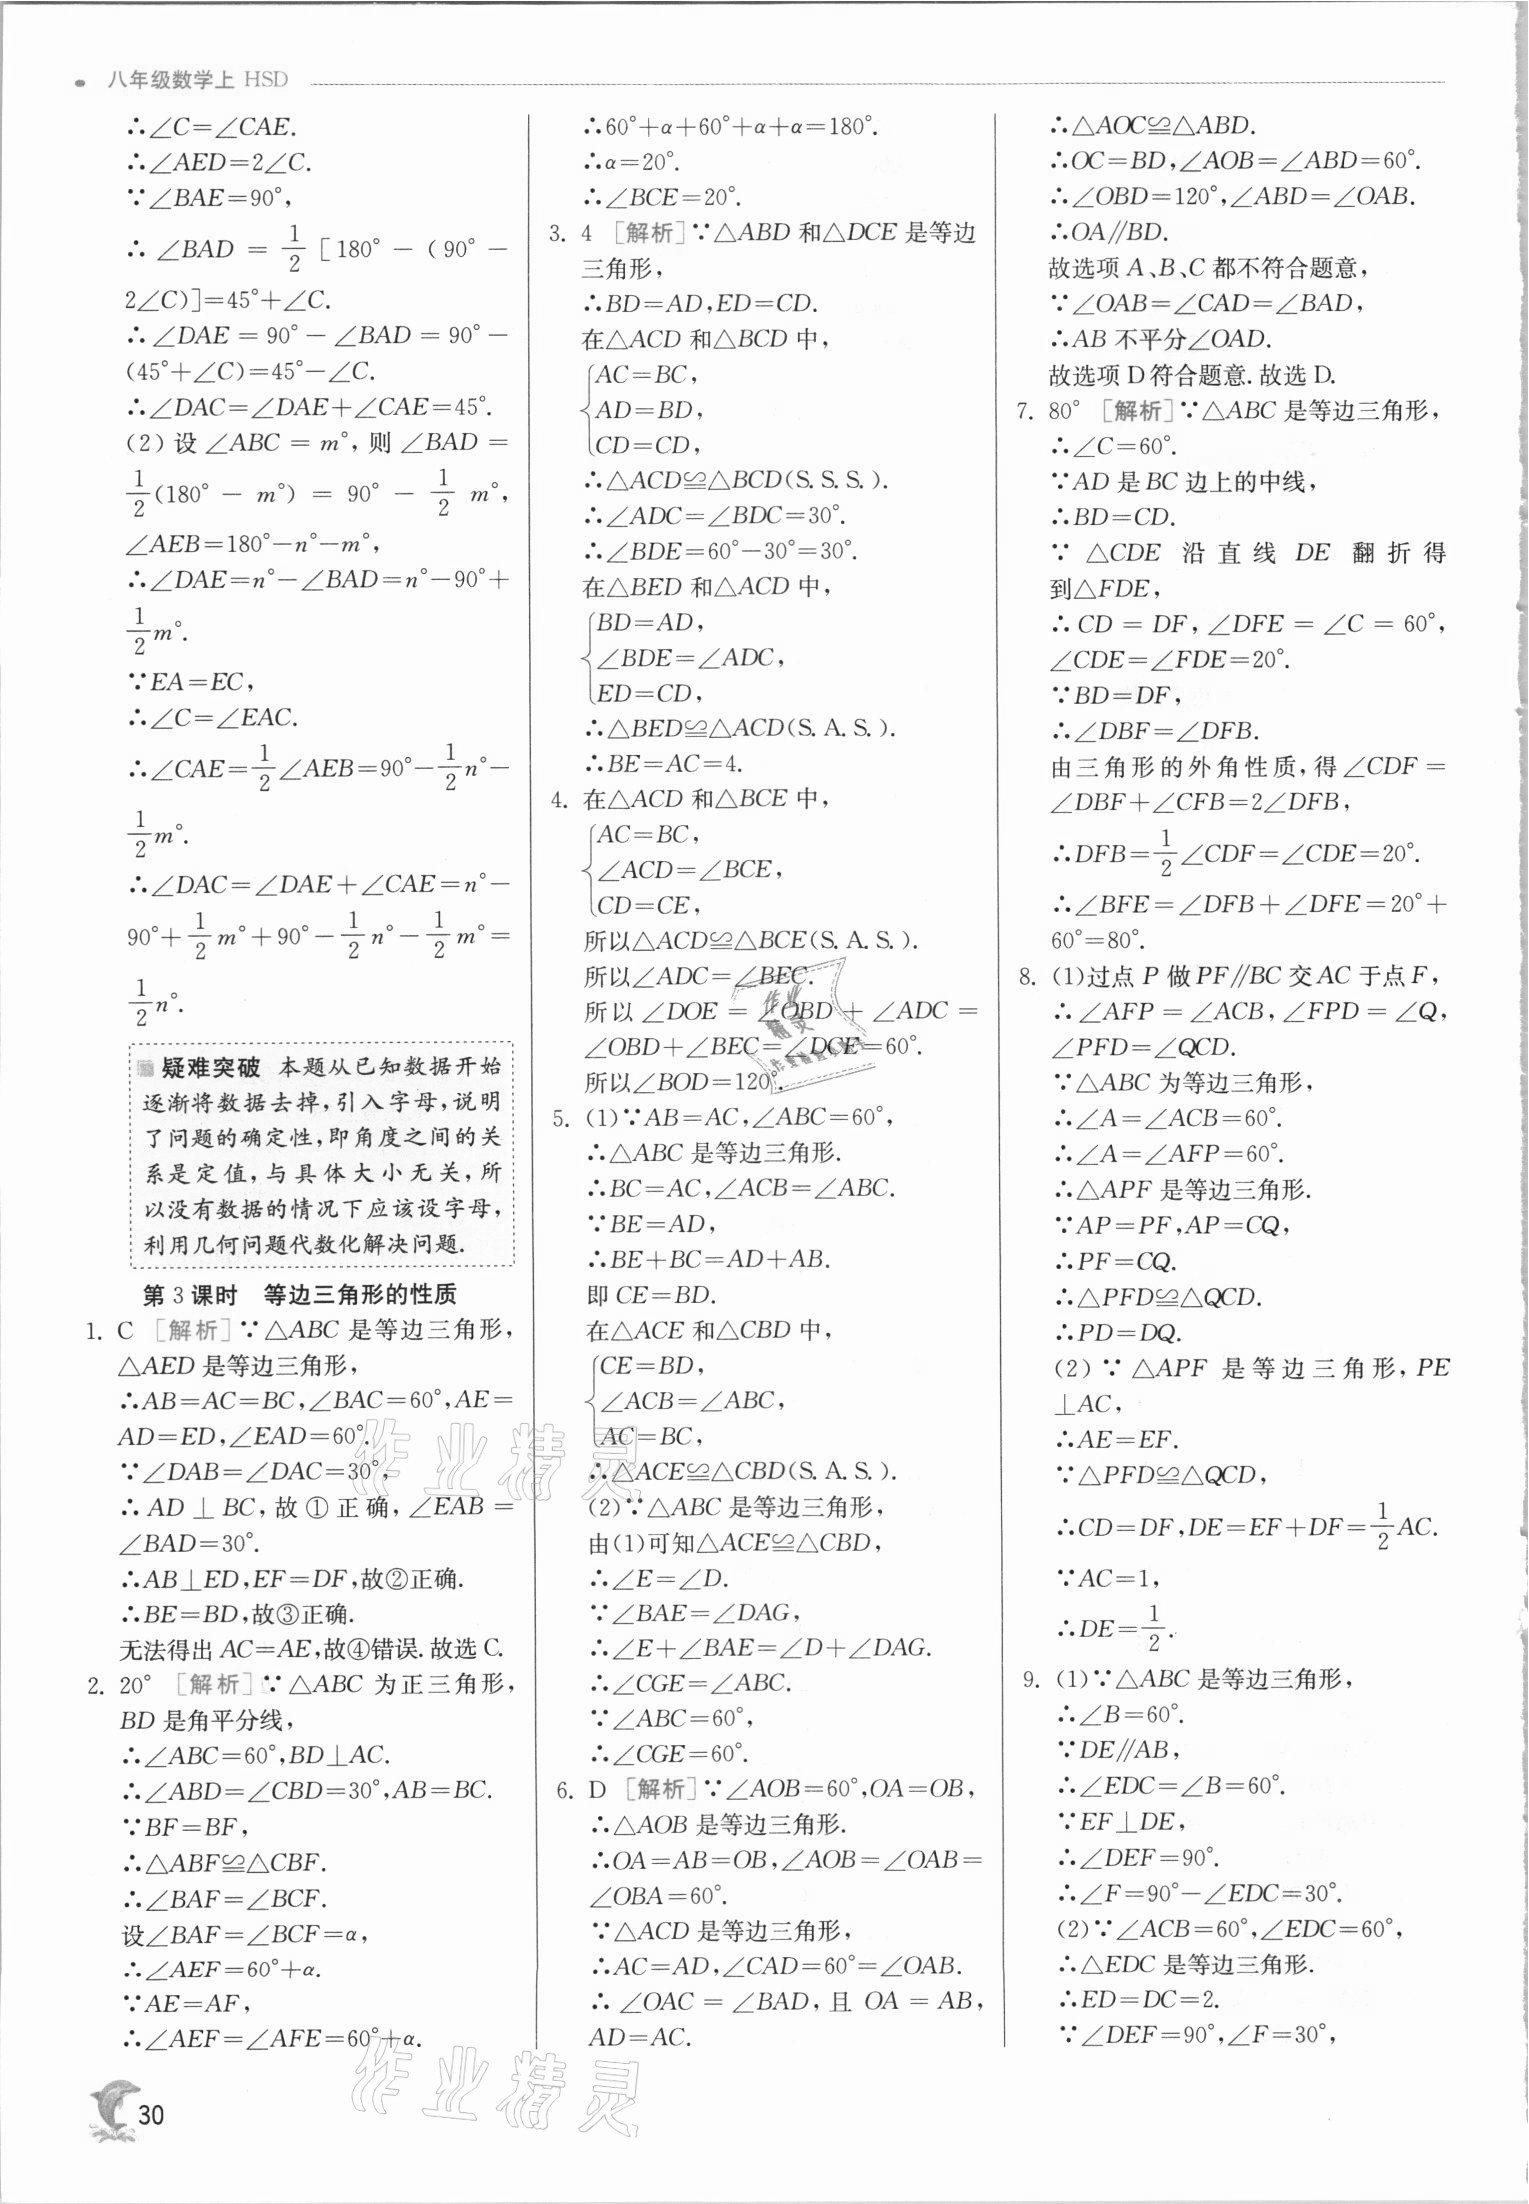 八年级数学上 HSD
∴∠C=∠CAE.
∴∠AED=2∠C.
∵∠BAE=90°,
∴∠BAD=1/2[180°-(90°-
2∠C)]=45°+∠C.
∴∠DAE=90°-∠BAD=90°-
(45°+∠C)=45°-∠C.
∴∠DAC=∠DAE+∠CAE=45°.
(2)设∠ABC=m°,则∠BAD=
1/2(180°-m°)=90°-1/2 m°,
∠AEB=180°-n°-m°,
∴∠DAE=n°-∠BAD=n°-90°+
1/2m°.
∵EA=EC,
∴∠C=∠EAC.
∴∠CAE=1/2∠AEB=90°-1/2n°-
1/2m°.
∴∠DAC=∠DAE+∠CAE=n°-
90°+1/2m°+90°-1/2n°-1/2m°=
1/2n°.
疑难突破 本题从已知数据开始
逐渐将数据去掉,引入字母,说明
了问题的确定性,即角度之间的关
系是定值,与具体大小无关,所
以没有数据的情况下应该设字母,
利用几何问题代数化解决问题.
第3课时 等边三角形的性质
1. C [解析]∵△ABC是等边三角形,
△AED是等边三角形,
∴AB=AC=BC,∠BAC=60°,AE=
AD=ED,∠EAD=60°.
∵∠DAB=∠DAC=30°,
∴AD⊥BC,故①正确,∠EAB=
∠BAD=30°.
∴AB⊥ED,EF=DF,故②正确.
∴BE=BD,故③正确.
无法得出AC=AE,故④错误.故选C.
2. 20° [解析]∵△ABC为正三角形,
BD是角平分线,
∴∠ABC=60°,BD⊥AC.
∴∠ABD=∠CBD=30°,AB=BC.
∵BF=BF,
∴△ABF≌△CBF.
∴∠BAF=∠BCF.
设∠BAF=∠BCF=α,
∴∠AEF=60°+α.
∵AE=AF,
∴∠AEF=∠AFE=60°+α.
∴60°+α+60°+α+α=180°.
∴α=20°.
∴∠BCE=20°.
3. 4 [解析]∵△ABD和△DCE是等边
三角形,
∴BD=AD,ED=CD.
在△ACD和△BCD中,
AC=BC,
AD=BD,
CD=CD,
∴△ACD≌△BCD(S.S.S.).
∴∠ADC=∠BDC=30°.
∴∠BDE=60°-30°=30°.
在△BED和△ACD中,
BD=AD,
∠BDE=∠ADC,
ED=CD,
∴△BED≌△ACD(S.A.S.).
∴BE=AC=4.
4. 在△ACD和△BCE中,
AC=BC,
∠ACD=∠BCE,
CD=CE,
所以△ACD≌△BCE(S.A.S.).
所以∠ADC=∠BEC.
所以∠DOE=∠OBD+∠ADC=
∠OBD+∠BEC=∠DCE=60°.
所以∠BOD=120°.
5. (1)∵AB=AC,∠ABC=60°,
∴△ABC是等边三角形.
∴BC=AC,∠ACB=∠ABC.
∵BE=AD,
∴BE+BC=AD+AB.
即CE=BD.
在△ACE和△CBD中,
CE=BD,
∠ACB=∠ABC,
AC=BC,
∴△ACE≌△CBD(S.A.S.).
(2)∵△ABC是等边三角形,
由(1)可知△ACE≌△CBD,
∴∠E=∠D.
∵∠BAE=∠DAG,
∴∠E+∠BAE=∠D+∠DAG.
∴∠CGE=∠ABC.
∵∠ABC=60°,
∴∠CGE=60°.
6. D [解析]∵∠AOB=60°,OA=OB,
∴△AOB是等边三角形.
∴OA=AB=OB,∠AOB=∠OAB=
∠OBA=60°.
∵△ACD是等边三角形,
∴AC=AD,∠CAD=60°=∠OAB.
∴∠OAC=∠BAD,且OA=AB,
AD=AC.
∴△AOC≌△ABD.
∴OC=BD,∠AOB=∠ABD=60°.
∴∠OBD=120°,∠ABD=∠OAB.
∴OA∥BD.
故选项A、B、C都不符合题意,
∵∠OAB=∠CAD=∠BAD,
∴AB不平分∠OAD.
故选项D符合题意.故选D.
7. 80° [解析]∵△ABC是等边三角形,
∴∠C=60°.
∵AD是BC边上的中线,
∴BD=CD.
∵△CDE沿直线DE翻折得
到△FDE,
∴CD=DF,∠DFE=∠C=60°,
∠CDE=∠FDE=20°.
∵BD=DF,
∴∠DBF=∠DFB.
由三角形的外角性质,得∠CDF=
∠DBF+∠CFB=2∠DFB,
∴DFB=1/2∠CDF=∠CDE=20°.
∴∠BFE=∠DFB+∠DFE=20°+
60°=80°.
8. (1)过点P做PF∥BC交AC于点F,
∴∠AFP=∠ACB,∠FPD=∠Q,
∠PFD=∠QCD.
∵△ABC为等边三角形,
∴∠A=∠ACB=60°.
∴∠A=∠AFP=60°.
∴△APF是等边三角形.
∵AP=PF,AP=CQ,
∴PF=CQ.
∴△PFD≌△QCD.
∴PD=DQ.
(2)∵△APF是等边三角形,PE
⊥AC,
∴AE=EF.
∵△PFD≌△QCD,
∴CD=DF,DE=EF+DF=1/2AC.
∵AC=1,
∴DE=1/2.
9. (1)∵△ABC是等边三角形,
∴∠B=60°.
∵DE∥AB,
∴∠EDC=∠B=60°.
∵EF⊥DE,
∴∠DEF=90°.
∴∠F=90°-∠EDC=30°.
(2)∵∠ACB=60°,∠EDC=60°,
∴△EDC是等边三角形.
∴ED=DC=2.
∵∠DEF=90°,∠F=30°,
30
作业精灵
作业精灵
作业精灵